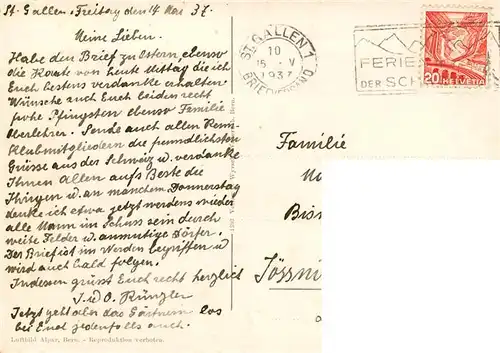 St. Gallen, Freitag den 14 Mai 37.
Meine Lieben.
Habe den Brief zu Ostern, ebenso
die Karte von heute Mittag die ich
Euch bestens verdanke erhalten
Wünsche auch Euch beiden recht
frohe Pfingsten ebenso Familie
Oberlehrer. Sende auch allen
Klubmitgliedern die freundlichsten
Grüsse aus der Schweiz u. verdanke
Ihnen Allen aufs Beste die
Ihrigen u. an manchem Donnerstag
denke ich etwa jetzt werdens wieder
alle Mann im Schuss sein durch
weite Felder u. anmutige Dörfer.
Der Brief ist im Werden begriffen u
wird auch bald folgen.
Indessen grüsst Euch recht herzlich
J. u O. Künzler
Jetzt geht aber das Gärtnern los
bei Euch jedenfalls auch.
Luftbild Alpar, Bern. - Reproduktion verboten.
ST. GALLEN 1
10
15. V
1937
BRIEFVERSAND
FERIE
DER SCH
20 HELVETIA
Familie
Bis
Jössni